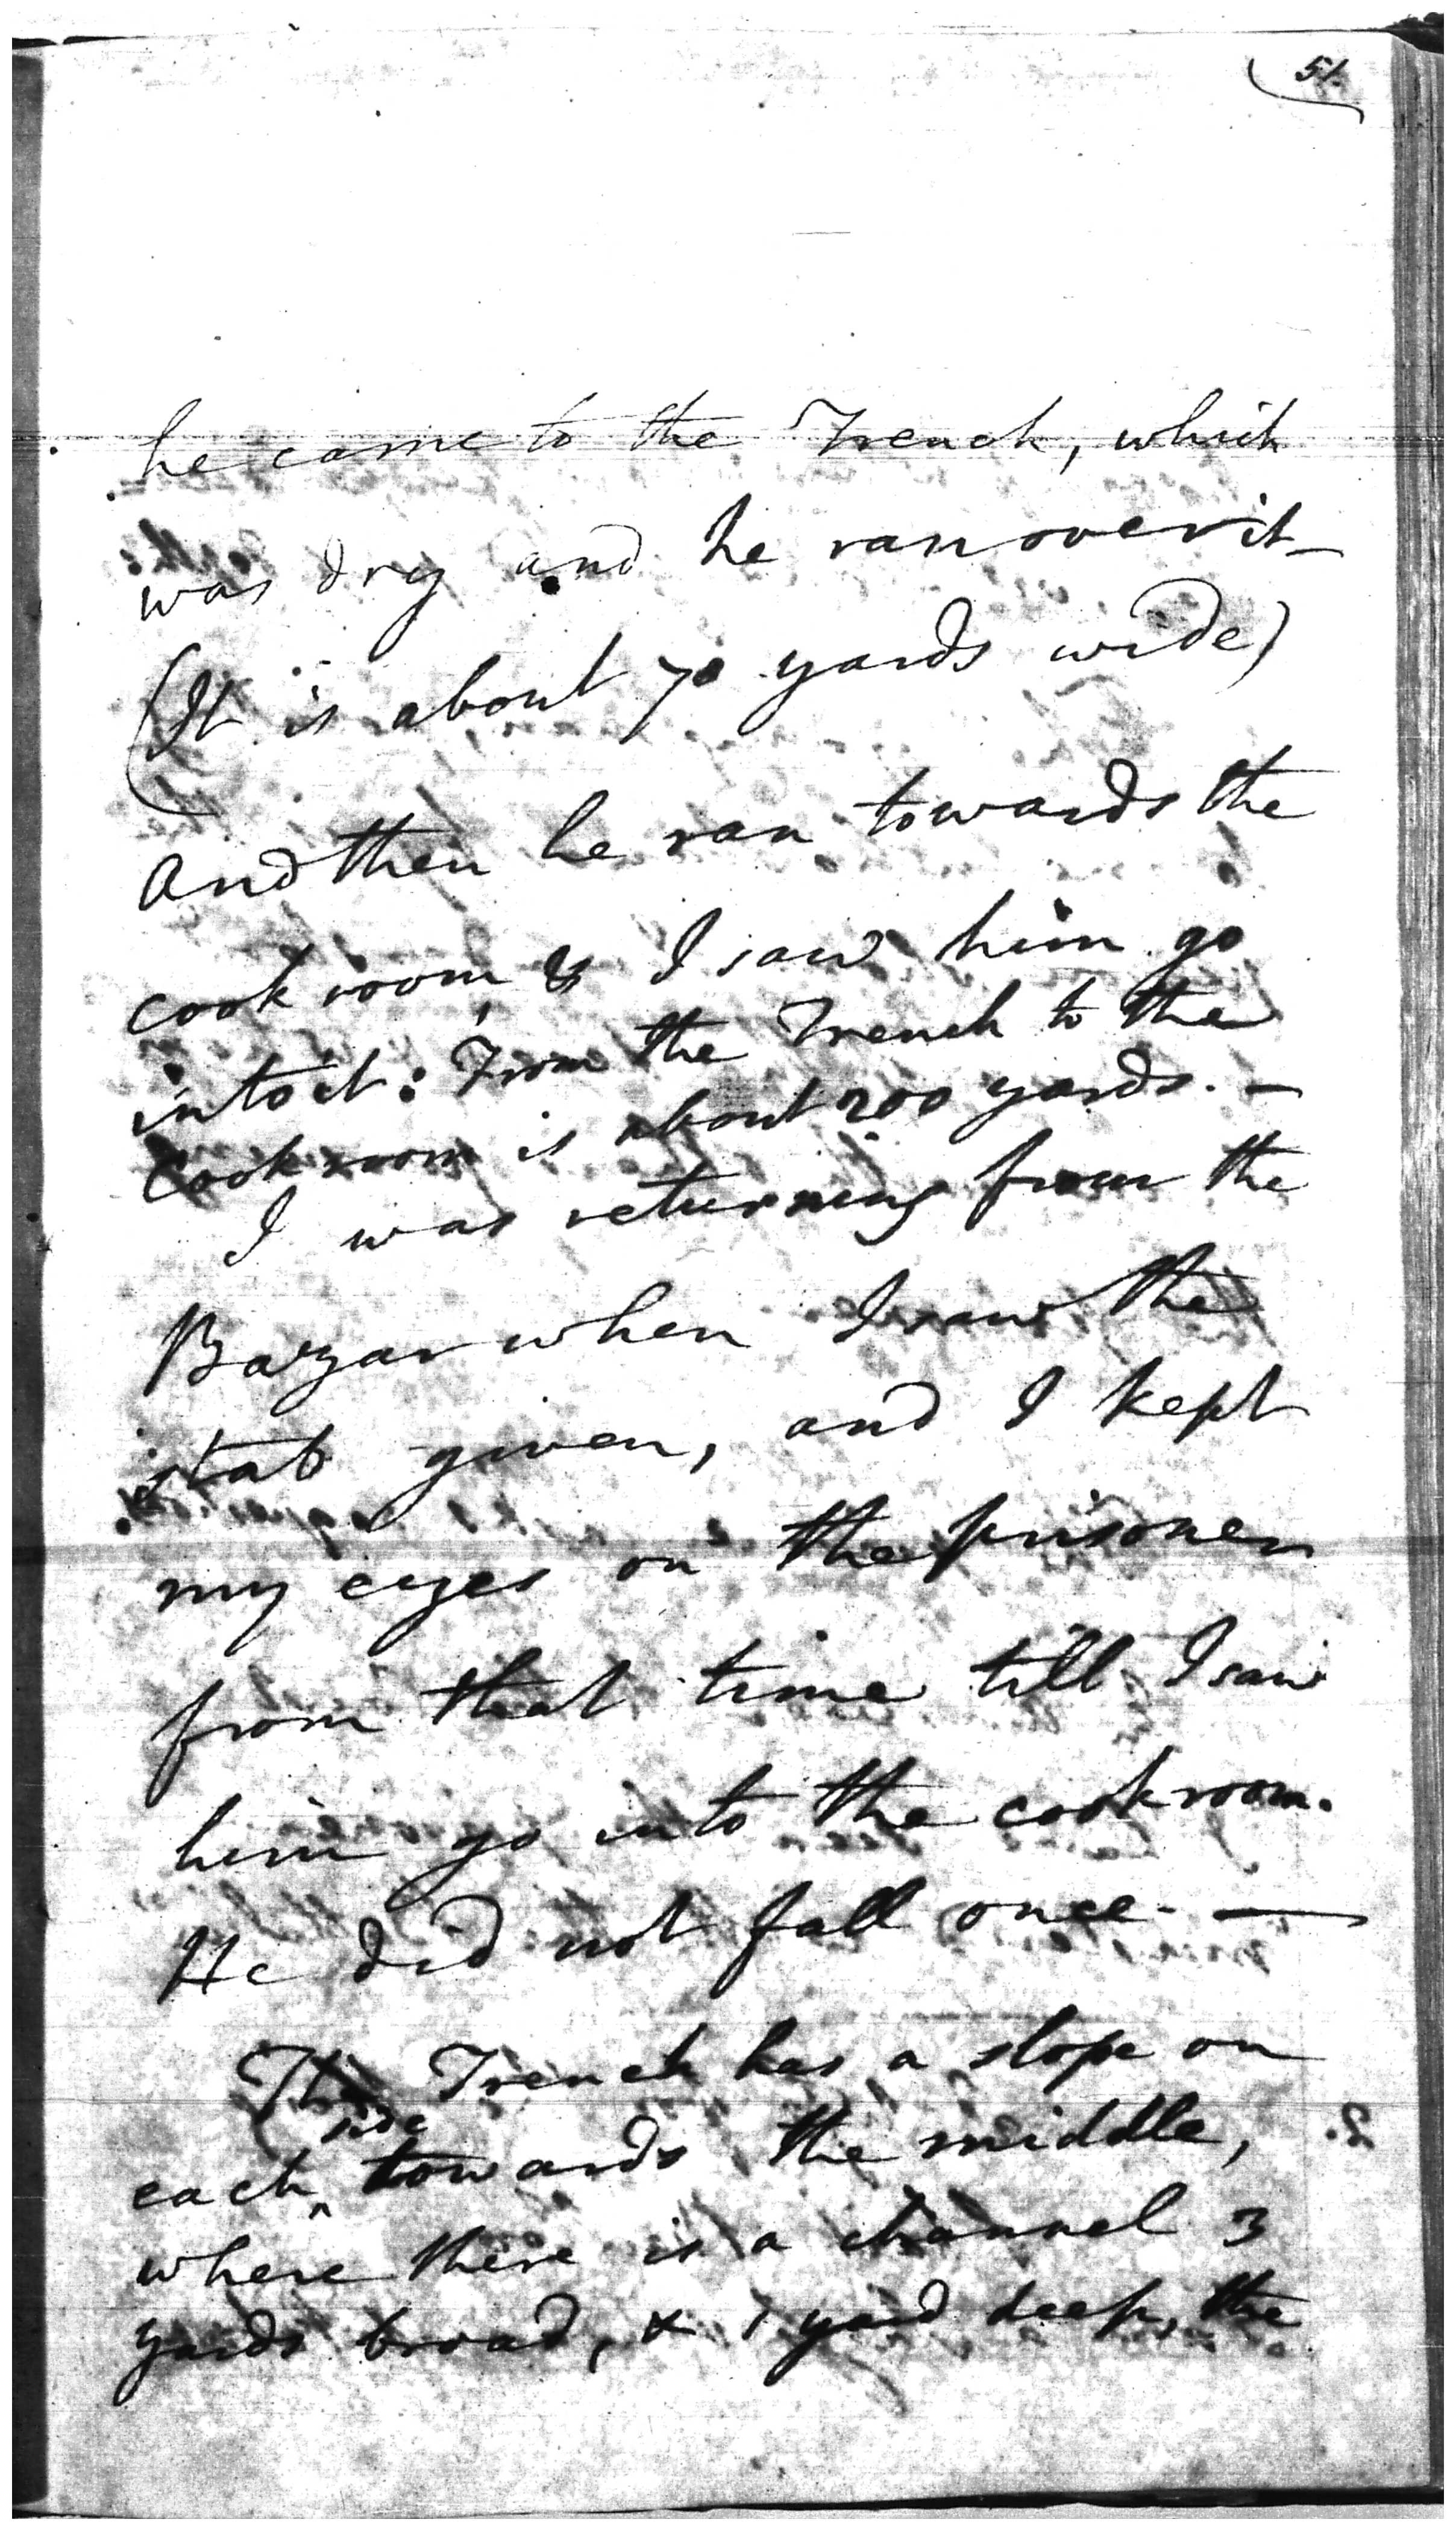 51.
he came to the Trench, which
was dry and he ran over it —
(It is about 70 yards wide)
And then he ran towards the
cook room, & I saw him go
into it: From the Trench to the
Cook room is about 200 yards. —
I was returning from the
Bazar when I saw the
stab given, and I kept
my eyes on the prisoner
from that time till I saw
him go into the cook room.
He did not fall once. —
The Trench has a slope on
side
each ^ towards the middle,
where there is a channel 3
yards broad, & 1 yard deep, the